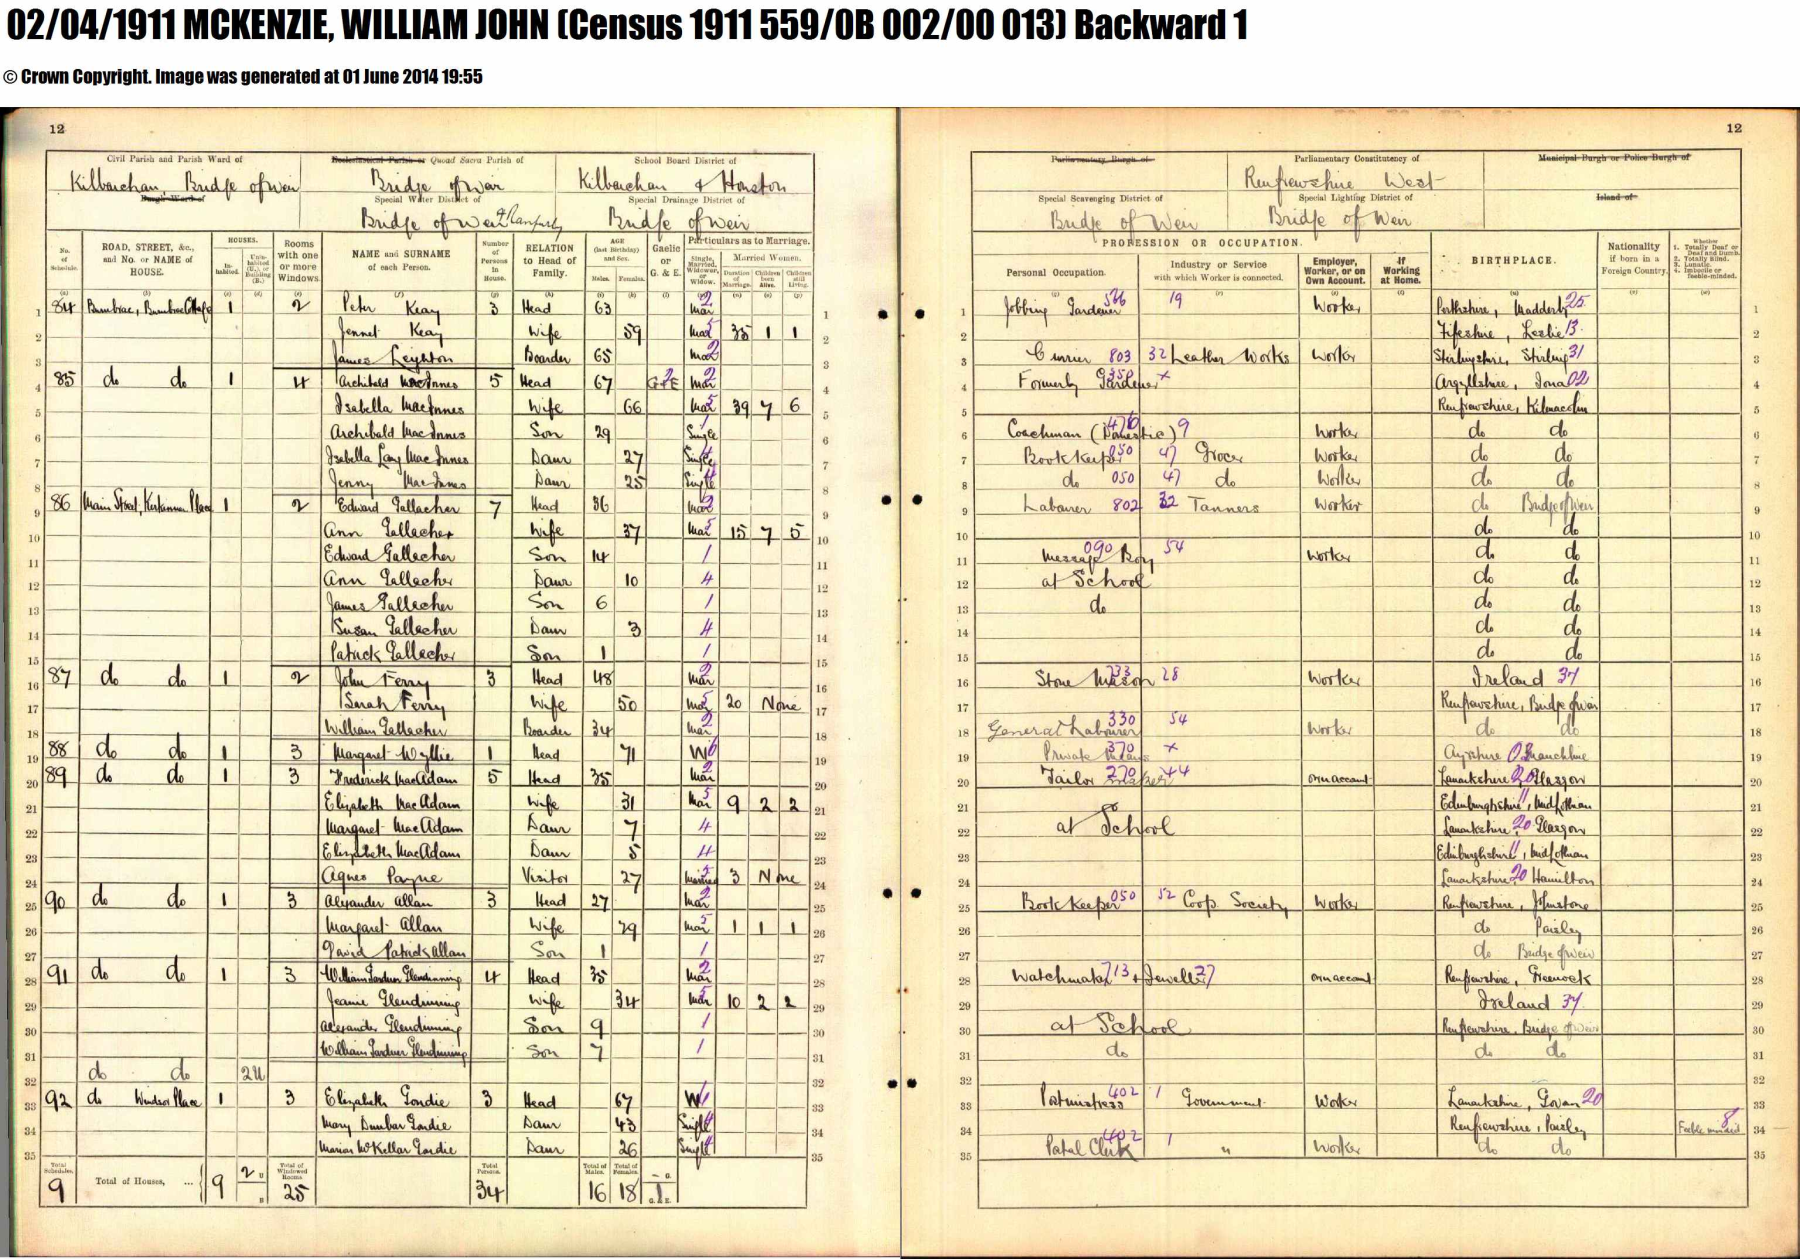 02/04/1911 MCKENZIE, WILLIAM JOHN (Census 1911 559/0B 002/00 013) Backward 1
© Crown Copyright. Image was generated at 01 June 2014 19:55
12
Civil Parish and Parish Ward of Ecclesiastical Parish or Quoad Sacra Parish of School Board District of
Kilbarchan, Bridge of weir Bridge of weir Kilbarchan & Houston
Burgh Ward of Special Water District of Special Drainage District of
Bridge of Weir & Ranfurly Bridge of Weir
No. of Schedule. ROAD, STREET, &c., and No. or NAME of HOUSE. HOUSES. Inhabited. Uninhabited (U.), or Building (B.) Rooms with one or more Windows. NAME and SURNAME of each Person. Number of Persons in House. RELATION to Head of Family. AGE (last Birthday) and Sex. Males. Females. Gaelic or G. & E. Particulars as to Marriage. Single, Married, Widower, or Widow. Married Women. Duration of Marriage. Children born Alive. Children still Living.
1 84 Burnbrae, Burnbrae Cottage 1 2 Peter Keay 3 Head 63 Mar 2 1
2 Jennet Keay Wife 59 Mar 5 35 1 1 2
3 James Leighton Boarder 65 Mar 2 3
4 85 do do 1 4 Archibald MacInnes 5 Head 67 G+E 2 Mar 2 4
5 Isabella MacInnes Wife 66 Mar 5 39 7 6 5
6 Archibald MacInnes Son 29 Single 1 6
7 Isabella Lang MacInnes Daur 27 Single 4 7
8 Jenny MacInnes Daur 25 Single 4 8
9 86 Main Street, Place 1 2 Edward Gallacher 7 Head 36 Mar 2 9
10 Ann Gallacher Wife 37 Mar 5 15 7 5 10
11 Edward Gallacher Son 14 1 11
12 Ann Gallacher Daur 10 4 12
13 James Gallacher Son 6 1 13
14 Susan Gallacher Daur 3 4 14
15 Patrick Gallacher Son 1 1 15
16 87 do do 1 2 John Ferry 3 Head 48 Mar 2 16
17 Sarah Ferry Wife 50 Mar 5 20 None 17
18 William Gallacher Boarder 34 Mar 2 18
19 88 do do 1 3 Margaret Wyllie 1 Head 71 W 6 19
20 89 do do 1 3 Frederick MacAdam 5 Head 35 Mar 2 20
21 Elizabeth MacAdam Wife 31 Mar 5 9 2 2 21
22 Margaret MacAdam Daur 7 4 22
23 Elizabeth MacAdam Daur 5 4 23
24 Agnes Payne Visitor 27 Married 5 3 None 24
25 90 do do 1 3 Alexander Allan 3 Head 27 Mar 2 25
26 Margaret Allan Wife 29 Mar 5 1 1 1 26
27 David Patrick Allan Son 1 1 27
28 91 do do 1 3 William Gardner Glendinning 4 Head 35 Mar 2 28
29 Jeanie Glendinning Wife 34 Mar 5 10 2 2 29
30 Alexander Glendinning Son 9 1 30
31 William Gardner Glendinning Son 7 1 31
32 do do 2U 32
33 92 do Windsor Place 1 3 Elizabeth Gondie 3 Head 67 W 33
34 Mary Dunbar Gondie Daur 43 Single 4 34
35 Marion McKellar Gondie Daur 26 Single 4 35
Total Schedules, 9 Total of Houses, ... 9 2 U B Total of Windowed Rooms 25 Total Persons, 34 Total of Males, 16 Total of Females, 18 G. 1 G. & E.
12
Parliamentary Burgh of Parliamentary Constituency of Municipal Burgh or Police Burgh of
Renfrewshire West
Special Scavenging District of Special Lighting District of Island of
Bridge of Weir Bridge of Weir
PROFESSION OR OCCUPATION. Personal Occupation. Industry or Service with which Worker is connected. Employer, Worker, or on Own Account. If Working at Home. BIRTHPLACE. Nationality if born in a Foreign Country. Whether 1. Totally Deaf or Deaf and Dumb. 2. Totally Blind. 3. Lunatic. 4. Imbecile or feeble-minded.
1 Jobbing Gardener 566 19 Worker Perthshire, Madderty 25 1
2 Fifeshire, Leslie 13 2
3 Currier 803 32 Leather Works Worker Stirlingshire, Stirling 31 3
4 Formerly Gardener 350 x Argyllshire, Iona 02 4
5 Renfrewshire, Kilmacolm 5
6 Coachman (Domestic) 470 9 Worker do do 6
7 Book keeper 050 47 Grocer Worker do do 7
8 do 050 47 do Worker do do 8
9 Labourer 802 32 Tanners Worker do Bridge of Weir 9
10 do do 10
11 Message Boy 090 54 Worker do do 11
12 at School do do 12
13 do do do 13
14 do do 14
15 do do 15
16 Stone Mason 733 28 Worker Ireland 37 16
17 Renfrewshire, Bridge of Weir 17
18 General Labourer 330 54 Worker do do 18
19 Private Means 370 x Ayrshire 03 Mauchline 19
20 Tailor 270 44 own account Lanarkshire 20 Glasgow 20
21 Edinburghshire 11, Midlothian 21
22 at School Lanarkshire 20 Glasgow 22
23 Edinburghshire 11, Midlothian 23
24 Lanarkshire 20 Hamilton 24
25 Book keeper 050 52 Coop. Society Worker Renfrewshire, Johnstone 25
26 do Paisley 26
27 do Bridge of Weir 27
28 Watchmaker 713 + Jeweller 27 own account Renfrewshire, Greenock 28
29 Ireland 37 29
30 at School Renfrewshire, Bridge of Weir 30
31 do do do 31
32 32
33 Postmistress 402 1 Government Worker Lanarkshire, Govan 20 33
34 Renfrewshire, Paisley Feeble minded 8 34
35 Postal Clerk 402 1 " Worker do do 35